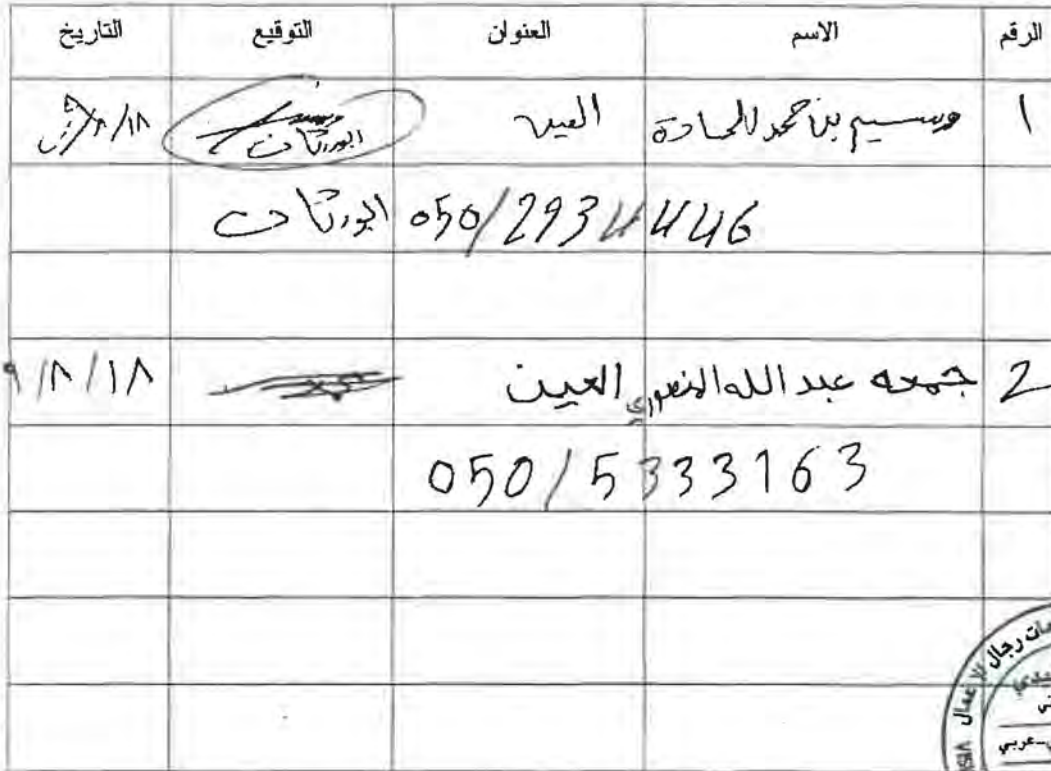 الرقم الاسم العنوان التوقيع التاريخ
١ وسيم بن حمد العين
ابورثات
050/2934446 ابورثات
2 جمعه عبد الله المنصوري العين ٩/٨/١٨
050/5333163
مات رجال الاعمال
ي-عربي